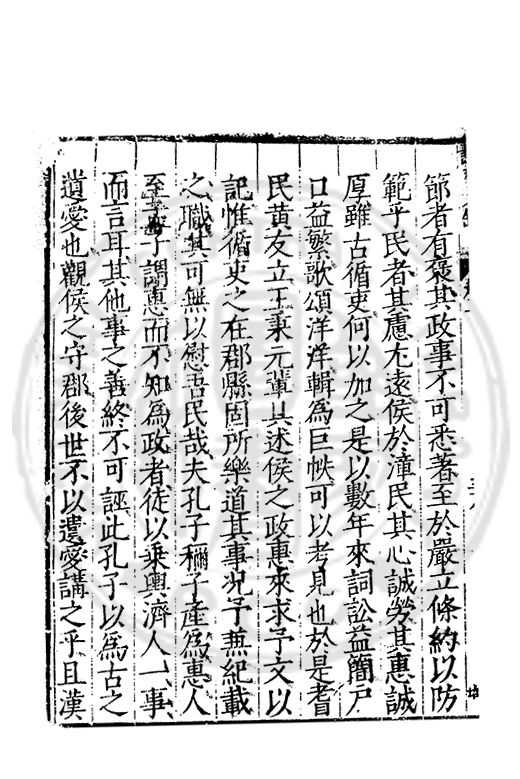 節者有褒其政事不可悉著至於嚴立條約以防
範乎民者其慮尤遠侯於潼民其心誠勞其惠誠
厚雖古循吏何以加之是以數年來詞訟益簡戶
口益繁歌頌洋洋輯為巨帙可以考見也於是耆
民黃友立王秉元輩具述侯之政惠來求予文以
記惟循吏之在郡縣固所樂道其事况予無紀載
之職其可無以慰吾民哉夫孔子稱子產為惠人
至孟子謂惠而不知為政者徒以乘輿濟人一事
而言耳其他事之善終不可誣此孔子以為古之
遺愛也觀侯之守郡後世不以遺愛講之乎且漢